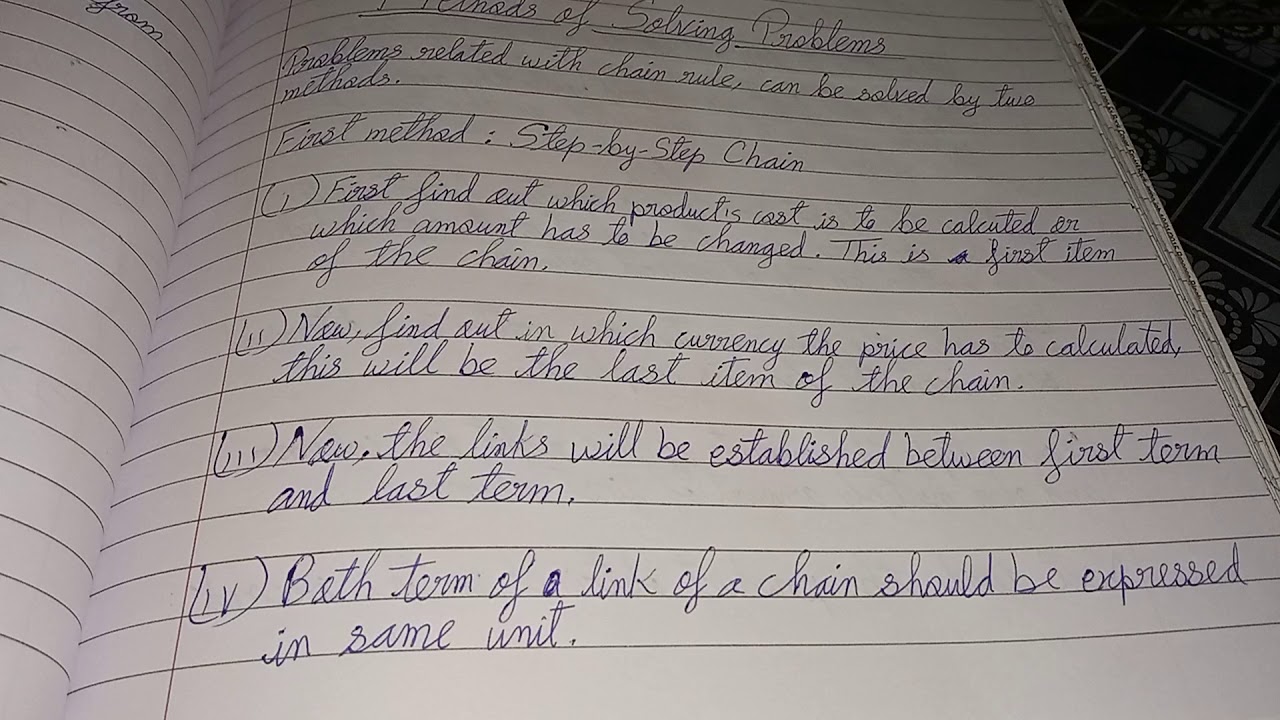 from
Methods of Solving Problems
Problems related with chain rule, can be solved by two
methods.
First method : Step-by-Step Chain
(i) First find out which product's cost is to be calcuted or
which amount has to be changed. This is a first item
of the chain.
(ii) Now, find out in which currency the price has to calculated,
this will be the last item of the chain.
(iii) Now, the links will be established between first term
and last term.
(iv) Both term of a link of a chain should be expressed
in same unit.